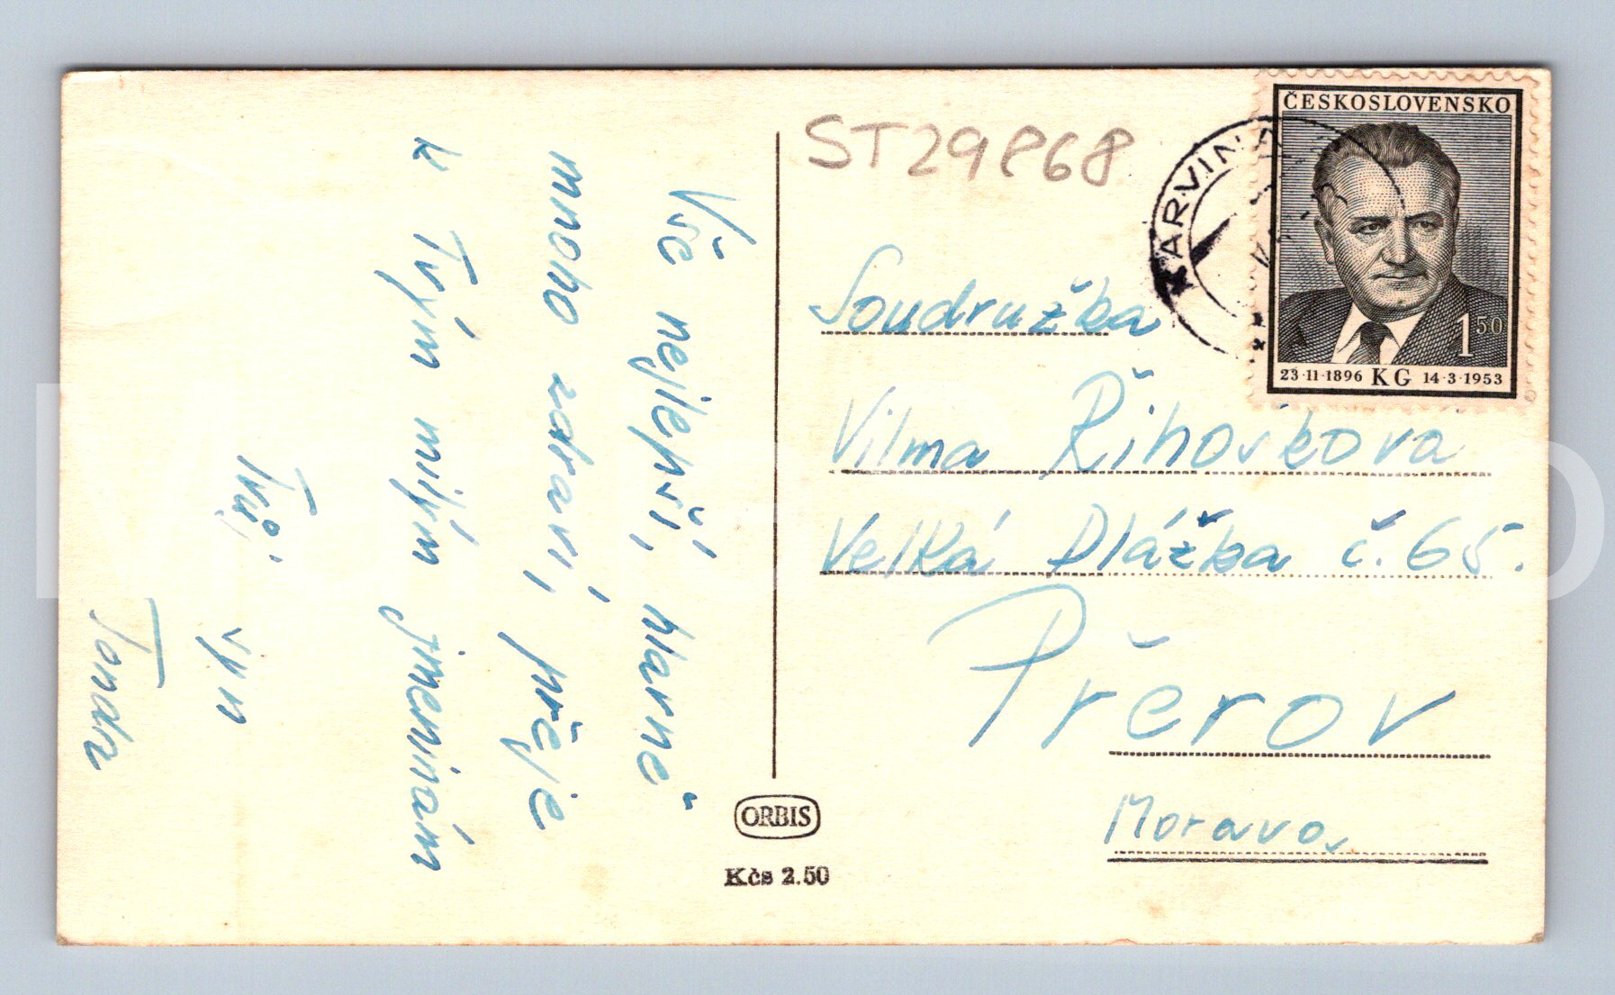 Vše nejlepší, hlavně
mnoho zdraví, přeje
k Tvým milým jmeninám
Tvůj
syn
Tonda
ST29868
KARVINÁ
ČESKOSLOVENSKO
1 50
23·11·1896 KG 14·3·1953
Soudružka
Vilma Řihošková
Velká Dlážka č. 65.
Přerov
Morava
ORBIS
Kčs 2.50